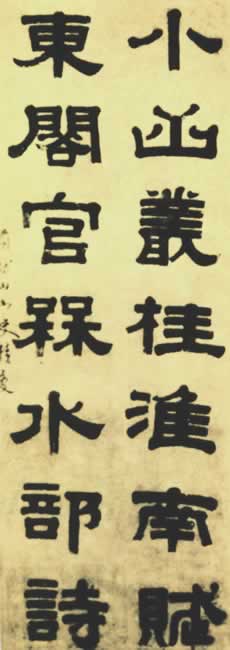 小山叢桂淮南賦
東閣官槑水部詩